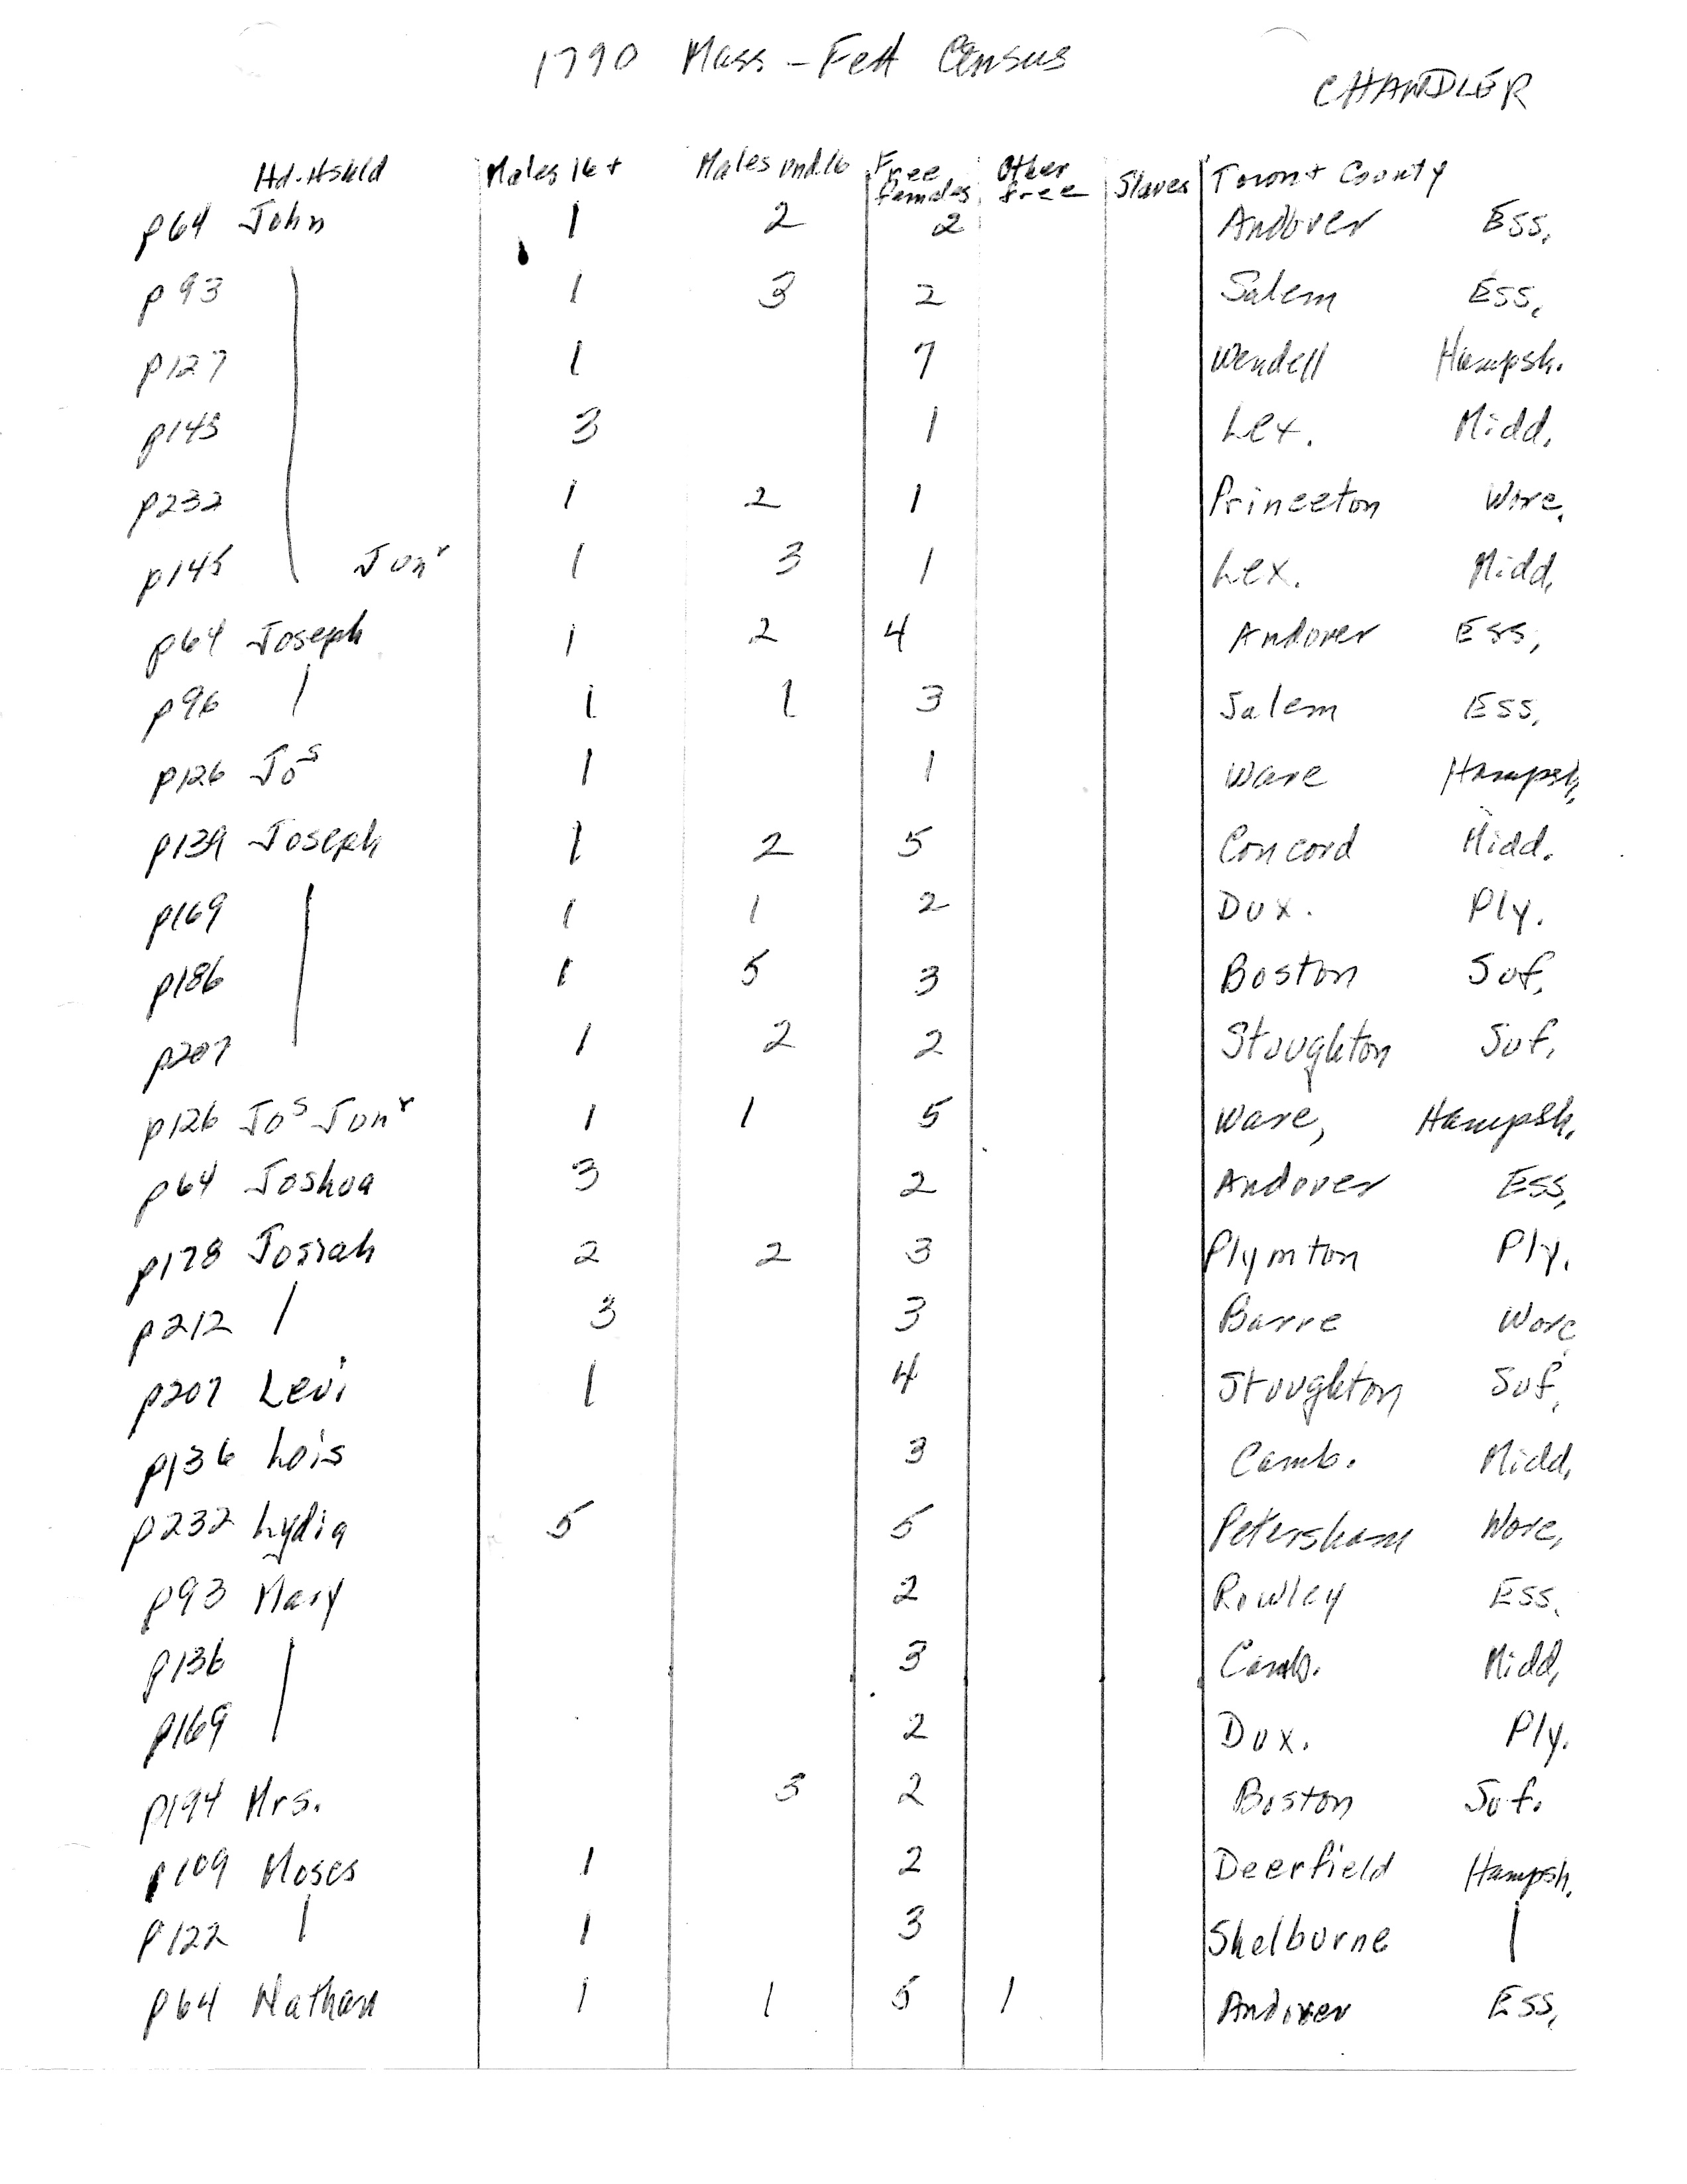 1790 Mass - Fed Census
CHANDLER
Hd. Hshld Males 16+ Males und.16 Free females Other free Slaves Town + County
p64 John 1 2 2 Andover Ess.
p93 1 3 2 Salem Ess.
p127 1 7 Wendell Hampsh.
p145 3 1 Lex. Midd.
p232 1 2 1 Princeton Worc.
p145 Junr 1 3 1 Lex. Midd.
p64 Joseph 1 2 4 Andover Ess,
p96 1 1 3 Salem Ess,
p126 Jos 1 1 Ware Hampsh,
p139 Joseph 1 2 5 Concord Midd.
p169 1 1 2 Dux. Ply.
p186 1 5 3 Boston Suf,
p207 1 2 2 Stoughton Suf,
p126 Jos Junr 1 1 5 Ware, Hampsh.
p64 Joshua 3 2 Andover Ess,
p178 Josiah 2 2 3 Plymton Ply.
p212 3 3 Barre Worc
p207 Levi 1 4 Stoughton Suf,
p136 Lois 3 Camb. Midd,
p232 Lydia 5 5 Petersham Worc,
p93 Mary 2 Rowley Ess.
p136 3 Camb. Midd,
p169 2 Dux. Ply.
p194 Mrs. 3 2 Boston Suf.
p109 Moses 1 2 Deerfield Hampsh.
p122 1 3 Shelburne
p64 Nathan 1 1 5 1 Andover Ess,